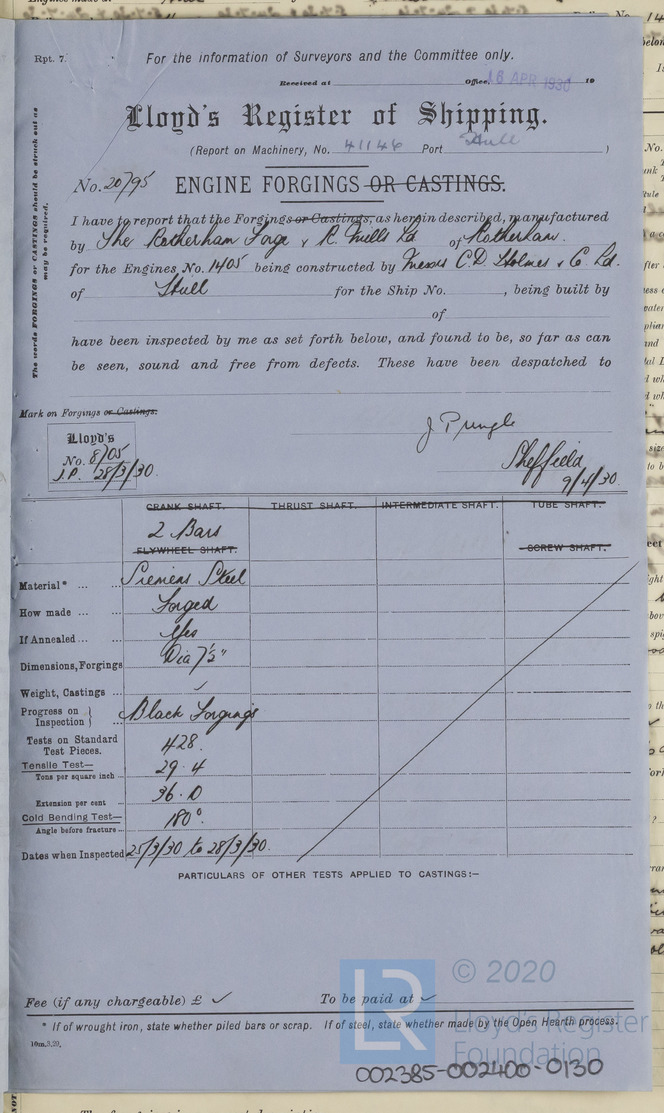 Rpt. 7.
For the information of Surveyors and the Committee only.
Received at Office, 16 APR 1930 19
Lloyd's Register of Shipping.
(Report on Machinery, No. 41146 Port Hull )
No. 20795 ENGINE FORGINGS OR CASTINGS.
The words FORGINGS or CASTINGS should be struck out as
may be required.
I have to report that the Forgings or Castings, as herein described, manufactured
by The Rotherham Forge & R. Mills Ld of Rotherham.
for the Engines No. 1405 being constructed by Messrs C.D. Holmes & Co Ld.
of Hull for the Ship No. , being built by
of
have been inspected by me as set forth below, and found to be, so far as can
be seen, sound and free from defects. These have been despatched to
Mark on Forgings or Castings.
Lloyd's
No. 8705
J.P. 28/3/30.
J Pringle
Sheffield
9/4/30.
CRANK SHAFT. THRUST SHAFT. INTERMEDIATE SHAFT. TUBE SHAFT.
2 Bars
FLYWHEEL SHAFT. SCREW SHAFT.
Material* ... ... Siemens Steel
How made ... ... Forged
If Annealed ... ... Yes
Dimensions, Forgings Dia 7½"
Weight, Castings ... ✓
Progress on
Inspection } Black Forgings
Tests on Standard
Test Pieces. 428.
Tensile Test—
Tons per square inch ... 29.4
Extension per cent 36.0
Cold Bending Test—
Angle before fracture ... 180°.
Dates when Inspected 25/3/30 to 28/3/30.
PARTICULARS OF OTHER TESTS APPLIED TO CASTINGS:—
Fee (if any chargeable) £ ✓ To be paid at ✓
* If of wrought iron, state whether piled bars or scrap. If of steel, state whether made by the Open Hearth process.
10m,3,29.
© 2020
LR
Lloyd's Register
Foundation
002385-002400-0130